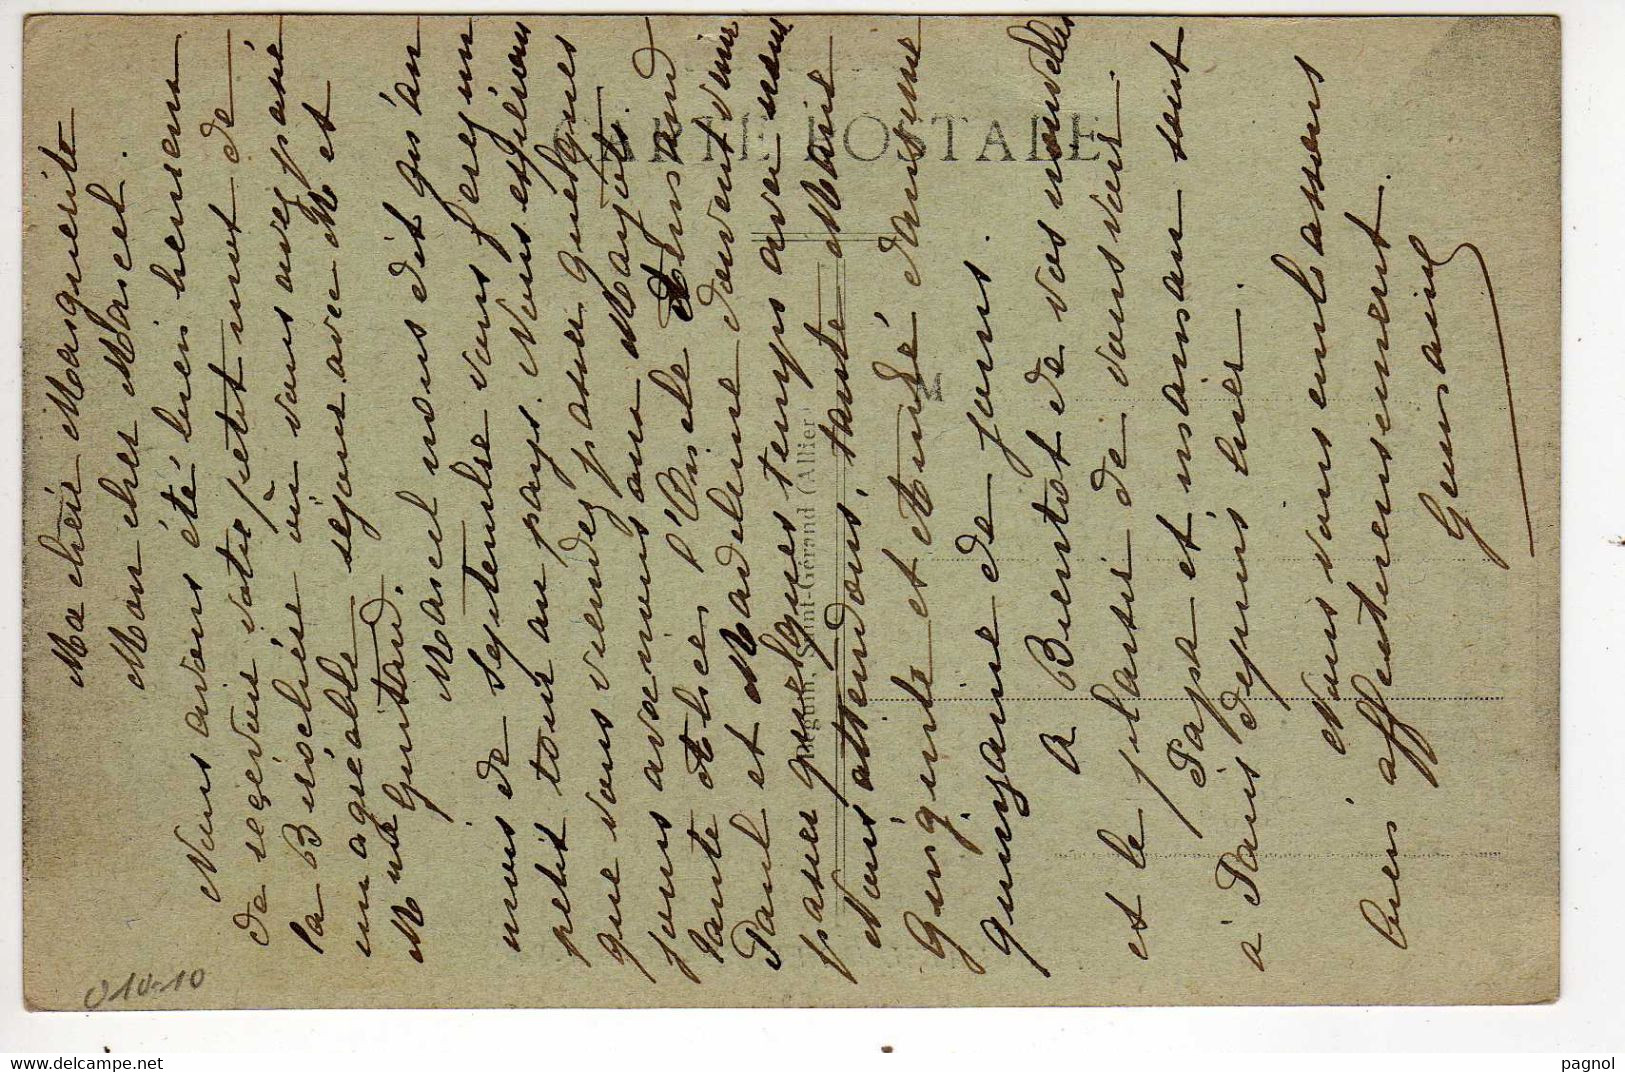 Ma chère Marguerite
Mon cher Marcel.
Nous avons été bien heureux
de recevoir votre petit mot de
la Bussolière où vous avez passé
un agréable séjour avec M et
Mme Guitard.
Marcel nous dit qu'au
mois de septembre vous ferez un
petit tour au pays. Nous espérons
que vous viendrez passer quelques
jours avec nous au Mayet.
Tante Alice, l'Oncle Armand
Paul et Madeleine doivent venir
passer quelques temps avec nous
Nous attendons, tante Marie
Ginginte et André dans une
quinzaine de jours.
A Bientôt de vos nouvelles
et le plaisir de vous voir.
Papa et maman sont
à Paris depuis hier.
Nous vous embrassons
bien affectueusement.
Germaine
CARTE POSTALE
Bégoin, Saint-Gérand (Allier)
M
010-10
pagnol